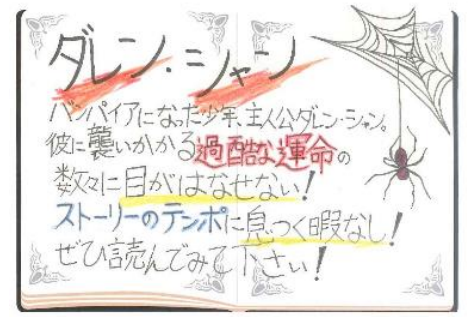 ダレン・シャン
バンパイアになった少年、主人公ダレン・シャン。
彼に襲いかかる過酷な運命の
数々に目がはなせない！
ストーリーのテンポに息つく暇なし！
ぜひ読んでみて下さい！